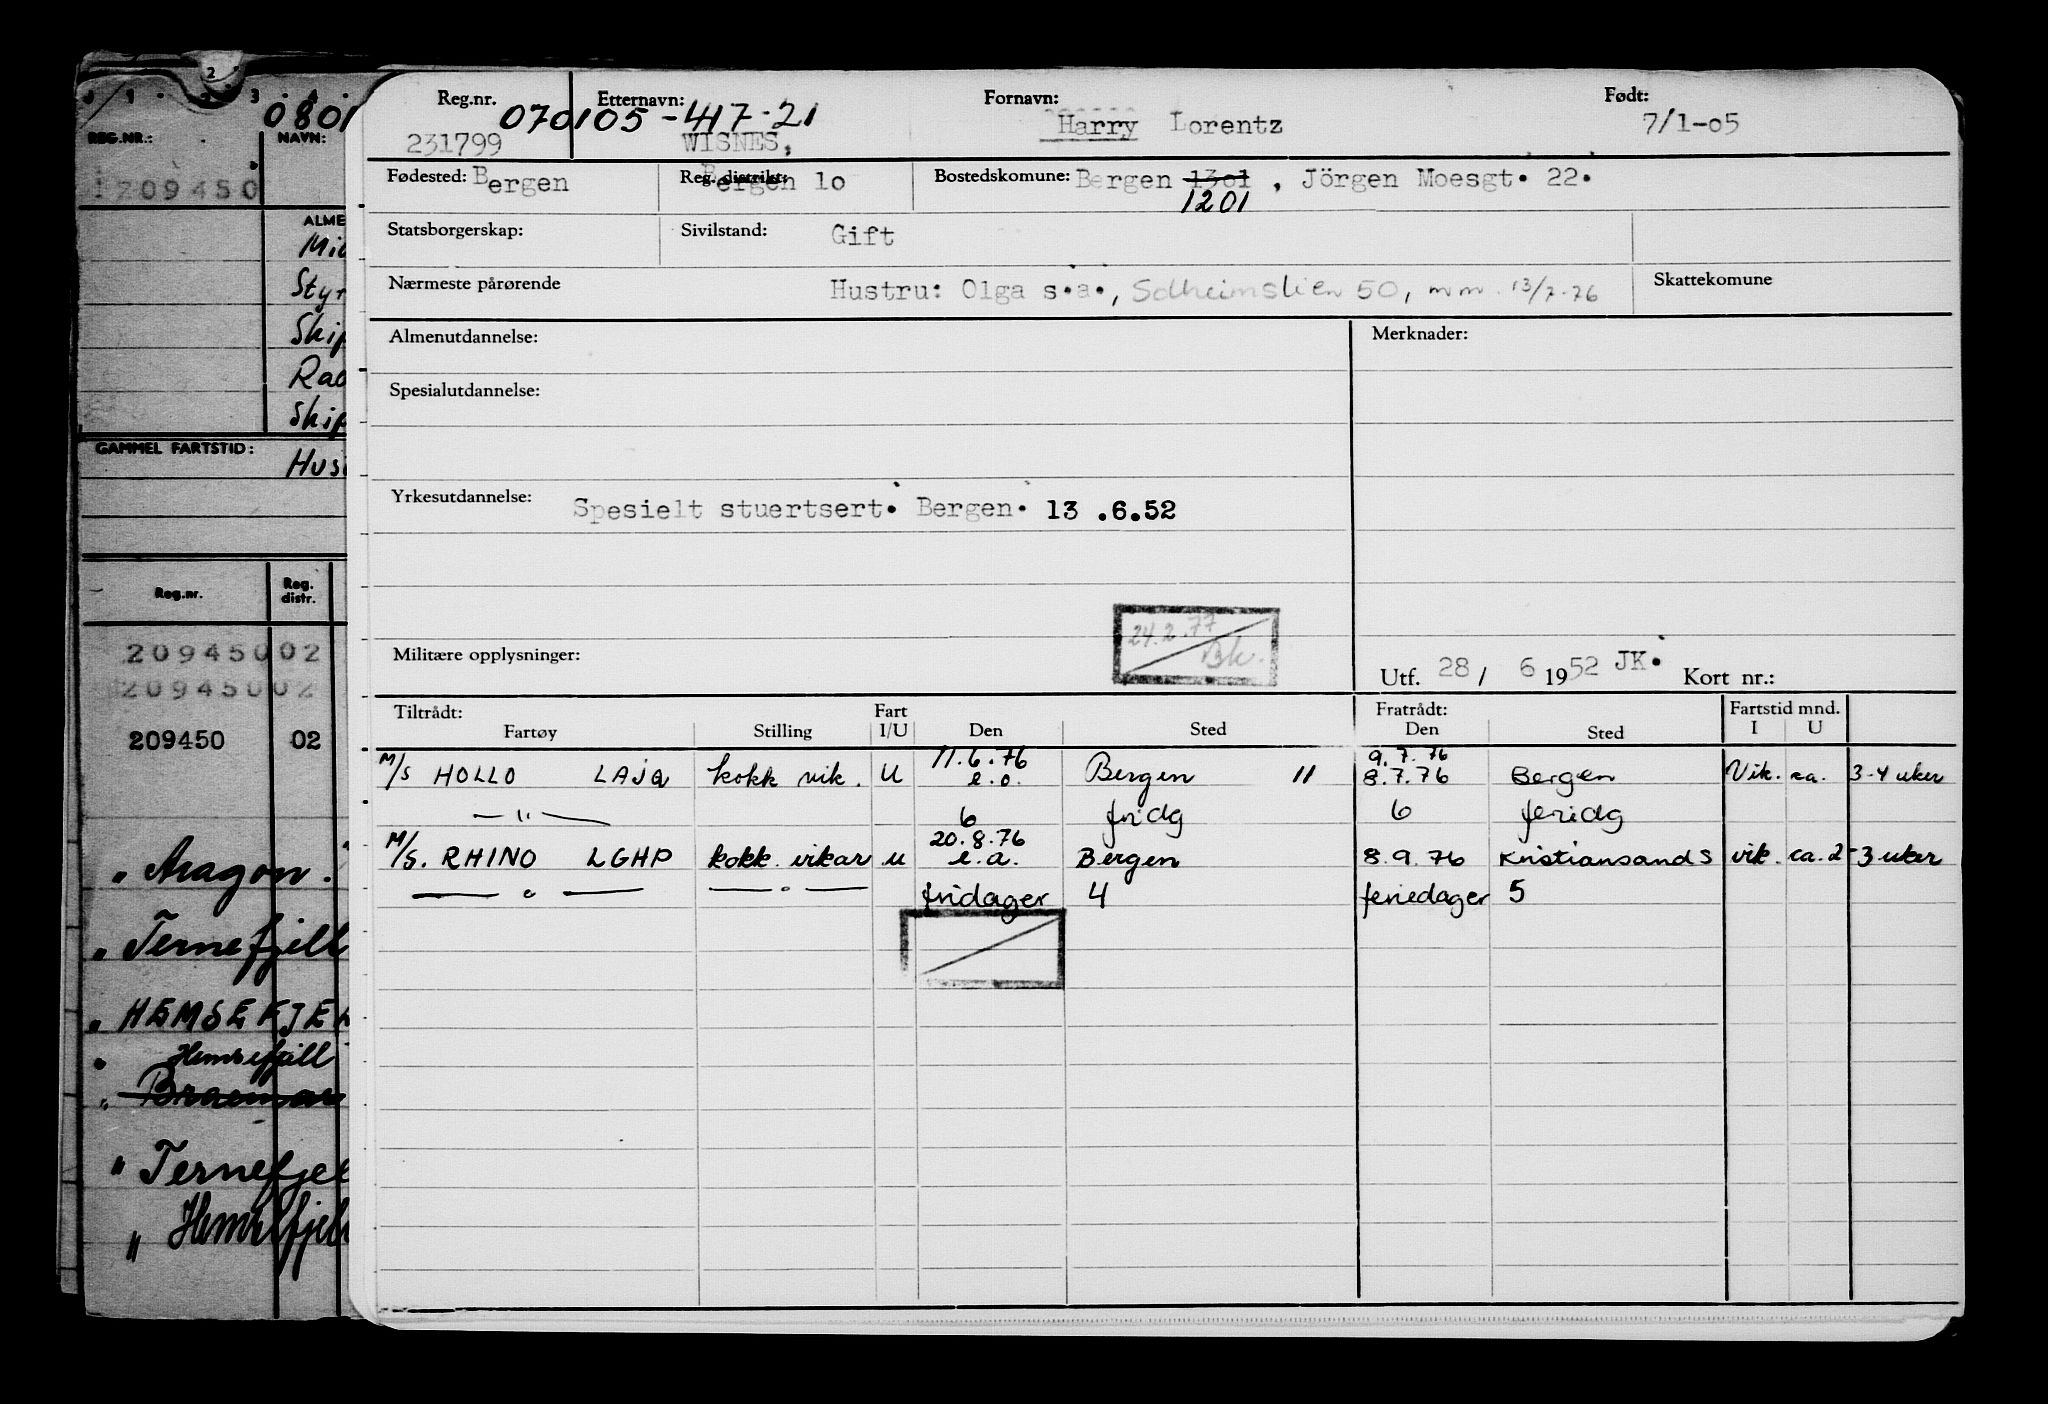 2
0801
REG.NR.:
NAVN:
1209450
ALME
Styr
Skip
Rad
Skip
GAMMEL FARTSTID:
Hust
Reg.nr.
Reg. distr.
20945002
20945002
209450 02
" Aragon.
" Ternefjell
" HEMSEFJEL
" Hemsefjell
" Braemar
" Ternefjel
" Hemsefjel
Reg.nr. Etternavn: Fornavn: Født:
070105-417-21
231799 WISNES, Harry Lorentz 7/1-05
Fødested: Bergen Reg. distrikt: Bergen 10 Bostedskomune: Bergen 1301, Jörgen Moesgt. 22.
1201
Statsborgerskap: Sivilstand: Gift
Nærmeste pårørende Hustru: Olga s.a., Solheimslien 50, mm. 13/7-76 Skattekomune
Almenutdannelse: Merknader:
Spesialutdannelse:
Yrkesutdannelse: Spesielt stuertsert. Bergen. 13 .6.52
24.2.77
Bk.
Militære opplysninger: Utf. 28 / 6 1952 JK. Kort nr.:
Tiltrådt: Fart Fratrådt: Fartstid mnd.
Fartøy Stilling I/U Den Sted Den Sted I U
11.6.76 9.7.76
M/S HOLLO LAJQ kokk vik. U e.o. Bergen 11 8.7.76 Bergen Vik. ca. 3-4 uker
— " — 6 fridg 6 feridg
20.8.76
M/S. RHINO LGHP kokk. vikar u e.a. Bergen 8.9.76 Kristiansand S vik. ca. 2-3 uker
— " — — " — fridager 4 feriedager 5